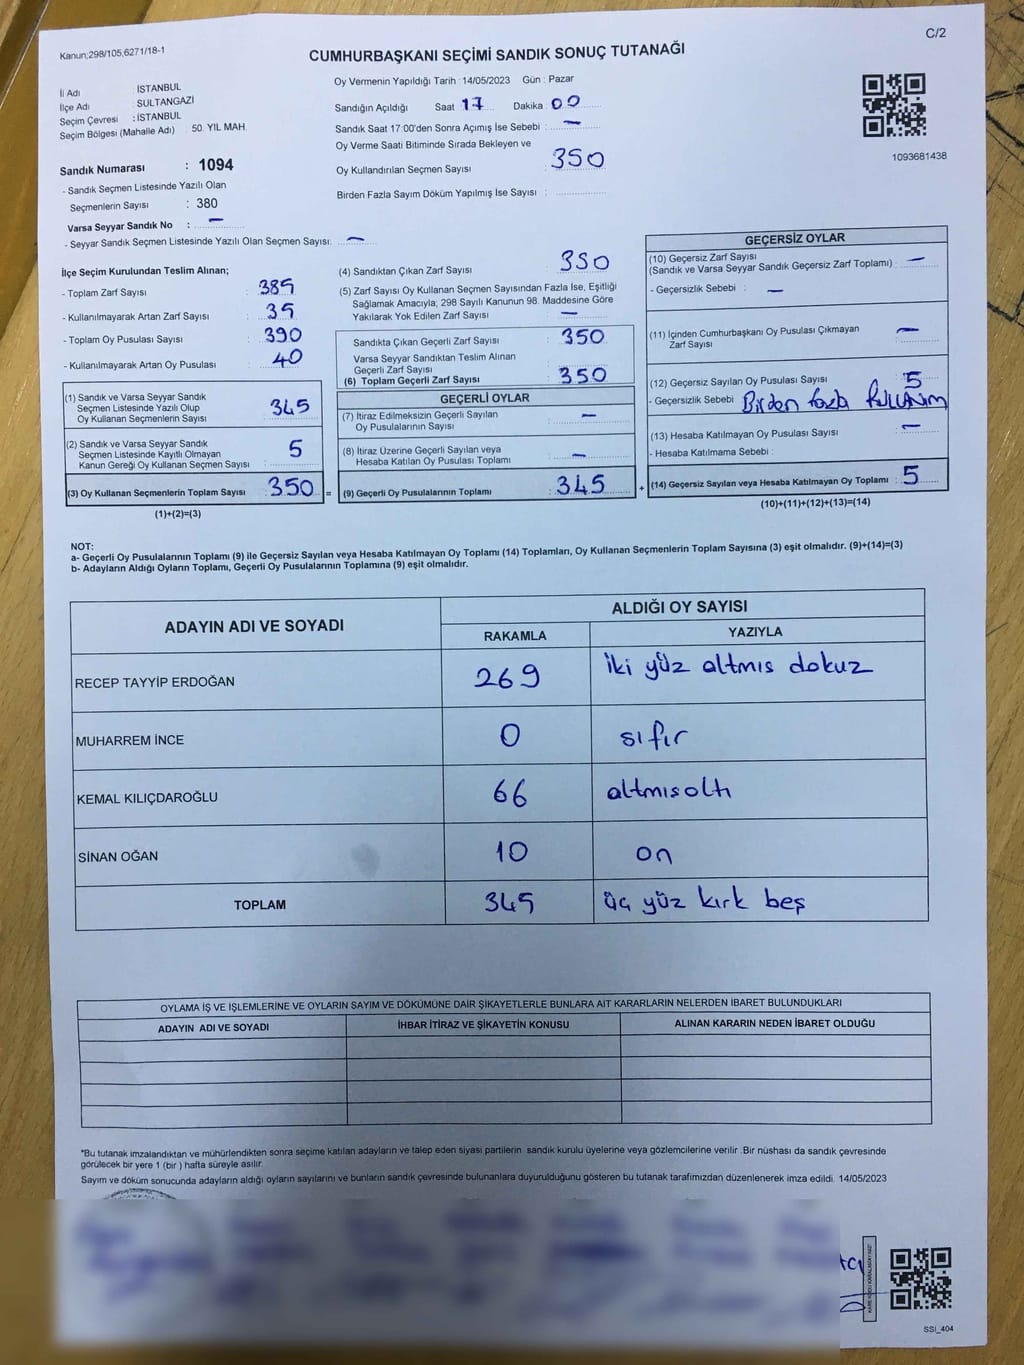 Kanun;298/105,6271/18-1
C/2
CUMHURBAŞKANI SEÇİMİ SANDIK SONUÇ TUTANAĞI
İl Adı : İSTANBUL
İlçe Adı : SULTANGAZİ
Seçim Çevresi : İSTANBUL
Seçim Bölgesi (Mahalle Adı) : 50. YIL MAH.
Sandık Numarası : 1094
- Sandık Seçmen Listesinde Yazılı Olan
Seçmenlerin Sayısı : 380
Varsa Seyyar Sandık No : –
- Seyyar Sandık Seçmen Listesinde Yazılı Olan Seçmen Sayısı: –
Oy Vermenin Yapıldığı Tarih : 14/05/2023 Gün : Pazar
Sandığın Açıldığı Saat 17 Dakika 00
Sandık Saat 17:00'den Sonra Açımış İse Sebebi : –
Oy Verme Saati Bitiminde Sırada Bekleyen ve
Oy Kullandırılan Seçmen Sayısı : 350
Birden Fazla Sayım Döküm Yapılmış İse Sayısı :
1093681438
İlçe Seçim Kurulundan Teslim Alınan;
- Toplam Zarf Sayısı : 385
- Kullanılmayarak Artan Zarf Sayısı : 35
- Toplam Oy Pusulası Sayısı : 390
- Kullanılmayarak Artan Oy Pusulası : 40
(1) Sandık ve Varsa Seyyar Sandık
Seçmen Listesinde Yazılı Olup
Oy Kullanan Seçmenlerin Sayısı : 345
(2) Sandık ve Varsa Seyyar Sandık
Seçmen Listesinde Kayıtlı Olmayan
Kanun Gereği Oy Kullanan Seçmen Sayısı : 5
(3) Oy Kullanan Seçmenlerin Toplam Sayısı : 350 =
(1)+(2)=(3)
(4) Sandıktan Çıkan Zarf Sayısı : 350
(5) Zarf Sayısı Oy Kullanan Seçmen Sayısından Fazla İse, Eşitliği
Sağlamak Amacıyla; 298 Sayılı Kanunun 98. Maddesine Göre
Yakılarak Yok Edilen Zarf Sayısı : –
Sandıkta Çıkan Geçerli Zarf Sayısı : 350
Varsa Seyyar Sandıktan Teslim Alınan
Geçerli Zarf Sayısı :
(6) Toplam Geçerli Zarf Sayısı : 350
GEÇERLİ OYLAR
(7) İtiraz Edilmeksizin Geçerli Sayılan
Oy Pusulalarının Sayısı : –
(8) İtiraz Üzerine Geçerli Sayılan veya
Hesaba Katılan Oy Pusulası Toplamı : –
(9) Geçerli Oy Pusulalarının Toplamı : 345 +
GEÇERSİZ OYLAR
(10) Geçersiz Zarf Sayısı
(Sandık ve Varsa Seyyar Sandık Geçersiz Zarf Toplamı) : –
- Geçersizlik Sebebi : –
(11) İçinden Cumhurbaşkanı Oy Pusulası Çıkmayan
Zarf Sayısı : –
(12) Geçersiz Sayılan Oy Pusulası Sayısı : 5
- Geçersizlik Sebebi : Birden fazla kullanım
(13) Hesaba Katılmayan Oy Pusulası Sayısı : –
- Hesaba Katılmama Sebebi :
(14) Geçersiz Sayılan veya Hesaba Katılmayan Oy Toplamı : 5
(10)+(11)+(12)+(13)=(14)
NOT:
a- Geçerli Oy Pusulalarının Toplamı (9) ile Geçersiz Sayılan veya Hesaba Katılmayan Oy Toplamı (14) Toplamları, Oy Kullanan Seçmenlerin Toplam Sayısına (3) eşit olmalıdır. (9)+(14)=(3)
b- Adayların Aldığı Oyların Toplamı, Geçerli Oy Pusulalarının Toplamına (9) eşit olmalıdır.
ADAYIN ADI VE SOYADI
ALDIĞI OY SAYISI
RAKAMLA YAZIYLA
RECEP TAYYİP ERDOĞAN 269 iki yüz altmıs dokuz
MUHARREM İNCE 0 sıfır
KEMAL KILIÇDAROĞLU 66 altmısaltı
SİNAN OĞAN 10 on
TOPLAM 345 üç yüz kırk beş
OYLAMA İŞ VE İŞLEMLERİNE VE OYLARIN SAYIM VE DÖKÜMÜNE DAİR ŞİKAYETLERLE BUNLARA AİT KARARLARIN NELERDEN İBARET BULUNDUKLARI
ADAYIN ADI VE SOYADI İHBAR İTİRAZ VE ŞİKAYETİN KONUSU ALINAN KARARIN NEDEN İBARET OLDUĞU
*Bu tutanak imzalandıktan ve mühürlendikten sonra seçime katılan adayların ve talep eden siyasi partilerin sandık kurulu üyelerine veya gözlemcilerine verilir .Bir nüshası da sandık çevresinde
görülecek bir yere 1 (bir ) hafta süreyle asılır.
Sayım ve döküm sonucunda adayların aldığı oyların sayılarını ve bunların sandık çevresinde bulunanlara duyurulduğunu gösteren bu tutanak tarafımızdan düzenlenerek imza edildi. 14/05/2023
SSİ_404